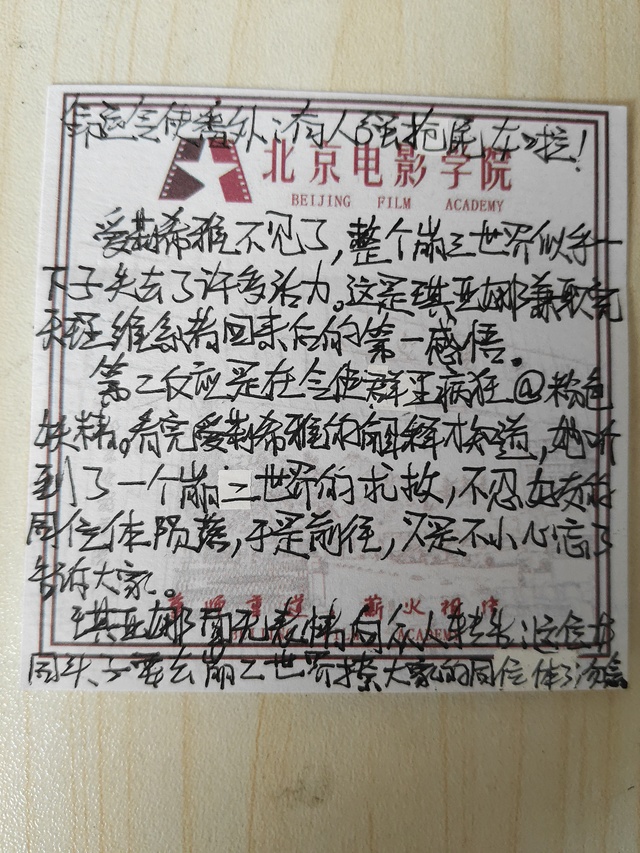 命运会使番外:有人强抢民女啦!
北京电影学院
BEIJING FILM ACADEMY
爱莉希雅不见了,整个崩三世界似乎一
下子失去了许多活力。这是琪亚娜兼职完
天理维系者回来后的第一感悟。
第二反应是在会使群里疯狂@粉色
妖精。看完爱莉希雅的解释才知道,她听
到了一个崩三世界的求救,不忍女孩的
同位体陨落,于是前往,只是不小心忘了
告诉大家。
尊师重道 薪火相传
琪亚娜面无表情向众人转头这位女
同头、要去崩三世界捞大家的同位体了